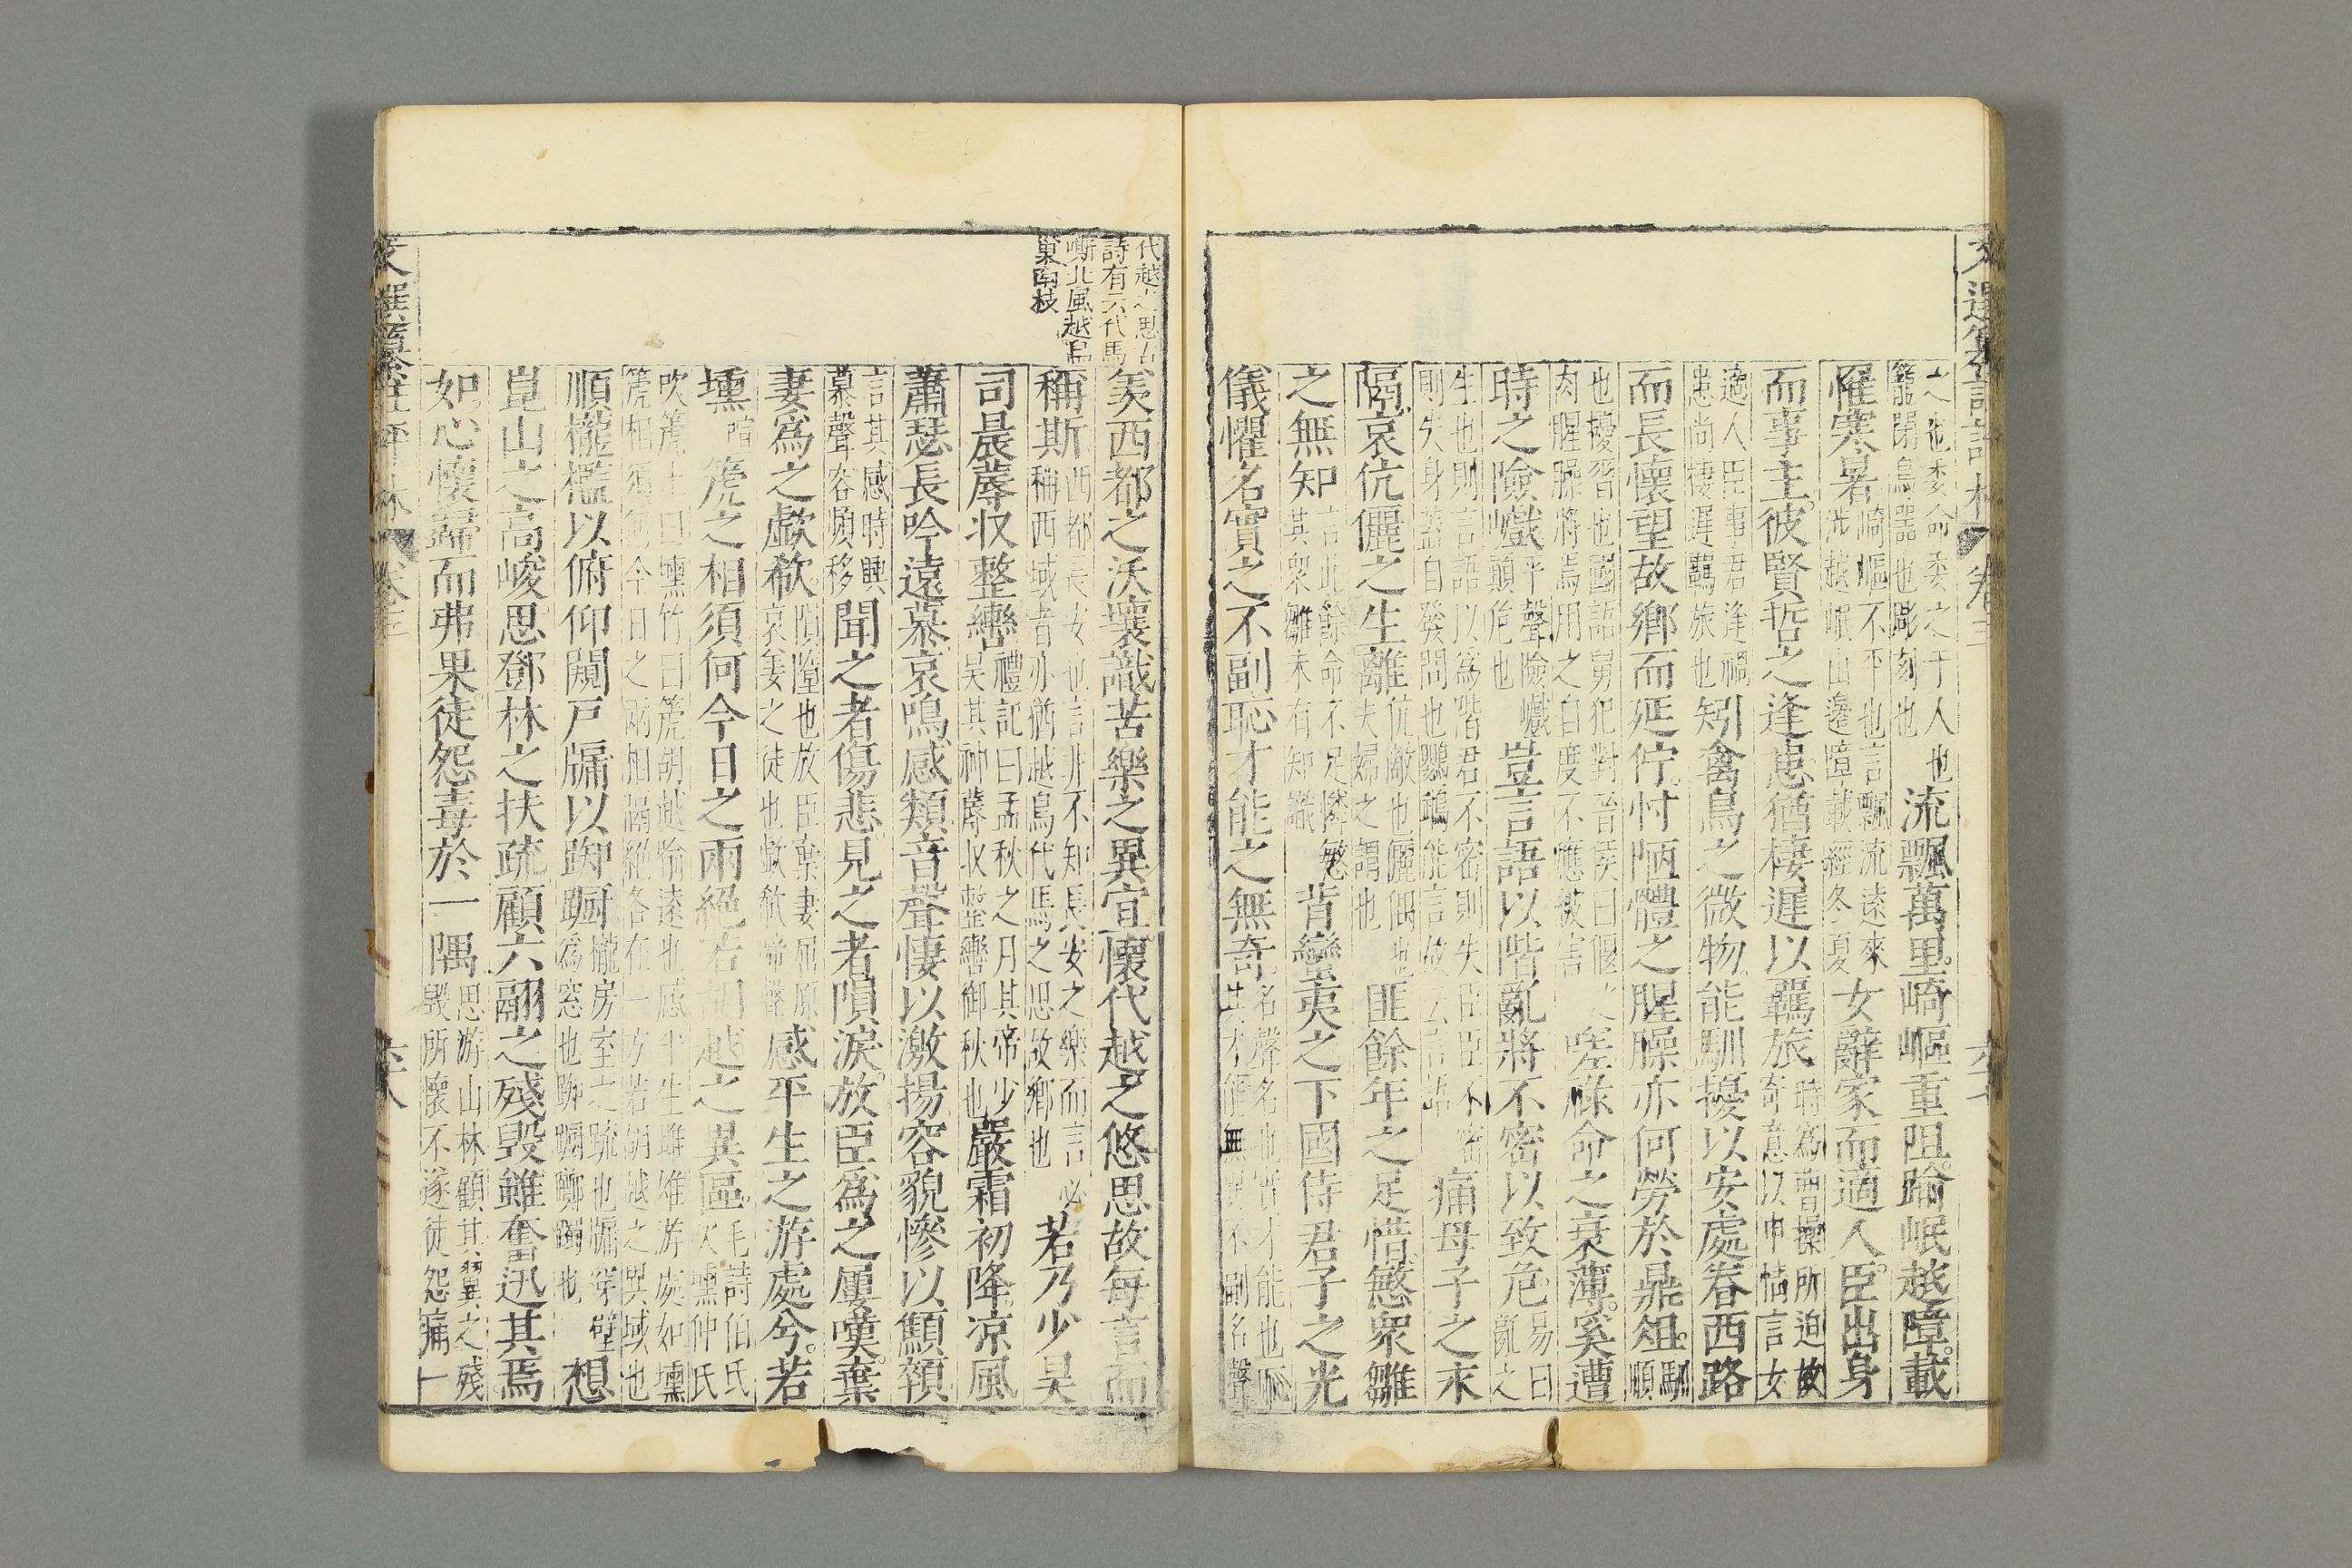 文選纂註評林 卷三 六十七
之也委命委之于人也籠閉鳥器也彫刻也流飄萬里崎嶇重阻踰岷越障載
罹寒暑崎嶇不平也言飄流遠來涉越岷山邊障載經冬夏女辭家而適人臣出身
而事主彼賢哲之逢患猶棲遲以羈旅時為曹操所迫故寄意以申情言女
適人臣事君逢禍患尚棲遲羈旅也矧禽鳥之微物能馴擾以安處眷西路
而長懷望故鄉而延佇忖陋體之腥臊亦何勞於鼎俎馴順
也擾習也國語舅犯對晉侯曰偃之肉腥臊將焉用之自度不應被害嗟祿命之衰薄奚遭
時之險巇平聲險巇顛危也豈言語以階亂將不密以致危易曰亂之
生也則言語以為階君不密則失臣臣不密則失身蓋自發問也鸚鵡能言故云言語痛母子之永
隔哀伉儷之生離伉敵也儷偶也夫婦之謂也匪餘年之足惜慜衆雛
之無知言此餘命不足憐慜其衆雛未有知識背蠻夷之下國侍君子之光
儀懼名實之不副恥才能之無奇名聲名也實才能也恥生才能無異不副名聲
代越之思古
詩有云代馬
嘶北風越鳥
巢南枝
羨西都之沃壤識苦樂之異宜懷代越之悠思故每言而
稱斯西都長安也言非不知長安之樂而言必稱西域者亦猶越鳥代馬之思故鄉也若乃少昊
司晨蓐收整轡禮記曰孟秋之月其帝少昊其神蓐收整轡御秋也嚴霜初降凉風
蕭瑟長吟遠慕哀鳴感類音聲悽以激揚容貌慘以顦顇
言其感時興慕聲容頻移聞之者傷悲見之者隕淚放臣爲之屢嘆棄
妻爲之歔欷隕墮也放臣棄妻屈原哀姜之徒也歔欷啼聲感平生之游處兮若
壎喧篪之相須何今日之兩絕若胡越之異區毛詩伯氏吹壎仲氏
吹篪土曰壎竹曰篪胡越喻遠也感平生雌雄游處如壎篪相須何今日之兩相隔絕各在一方若胡越之異域也
順櫳檻以俯仰闚戶牖以踟躕櫳房室之疏也牖穿壁為窓也踟躕躑躅也想
崑山之高峻思鄧林之扶疏顧六翮之殘毀雖奮迅其焉
如心懷歸而弗果徒怨毒於一隅思游山林顧其翼之殘毀所懷不遂徒怨痛
文選纂註評林 卷三 六十八